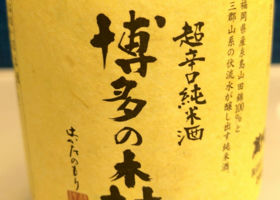 福岡県産糸島山田錦100%と
三郡山系の伏流水が醸し出す純米酒。
超辛口純米酒
博多の森
はかたのもり